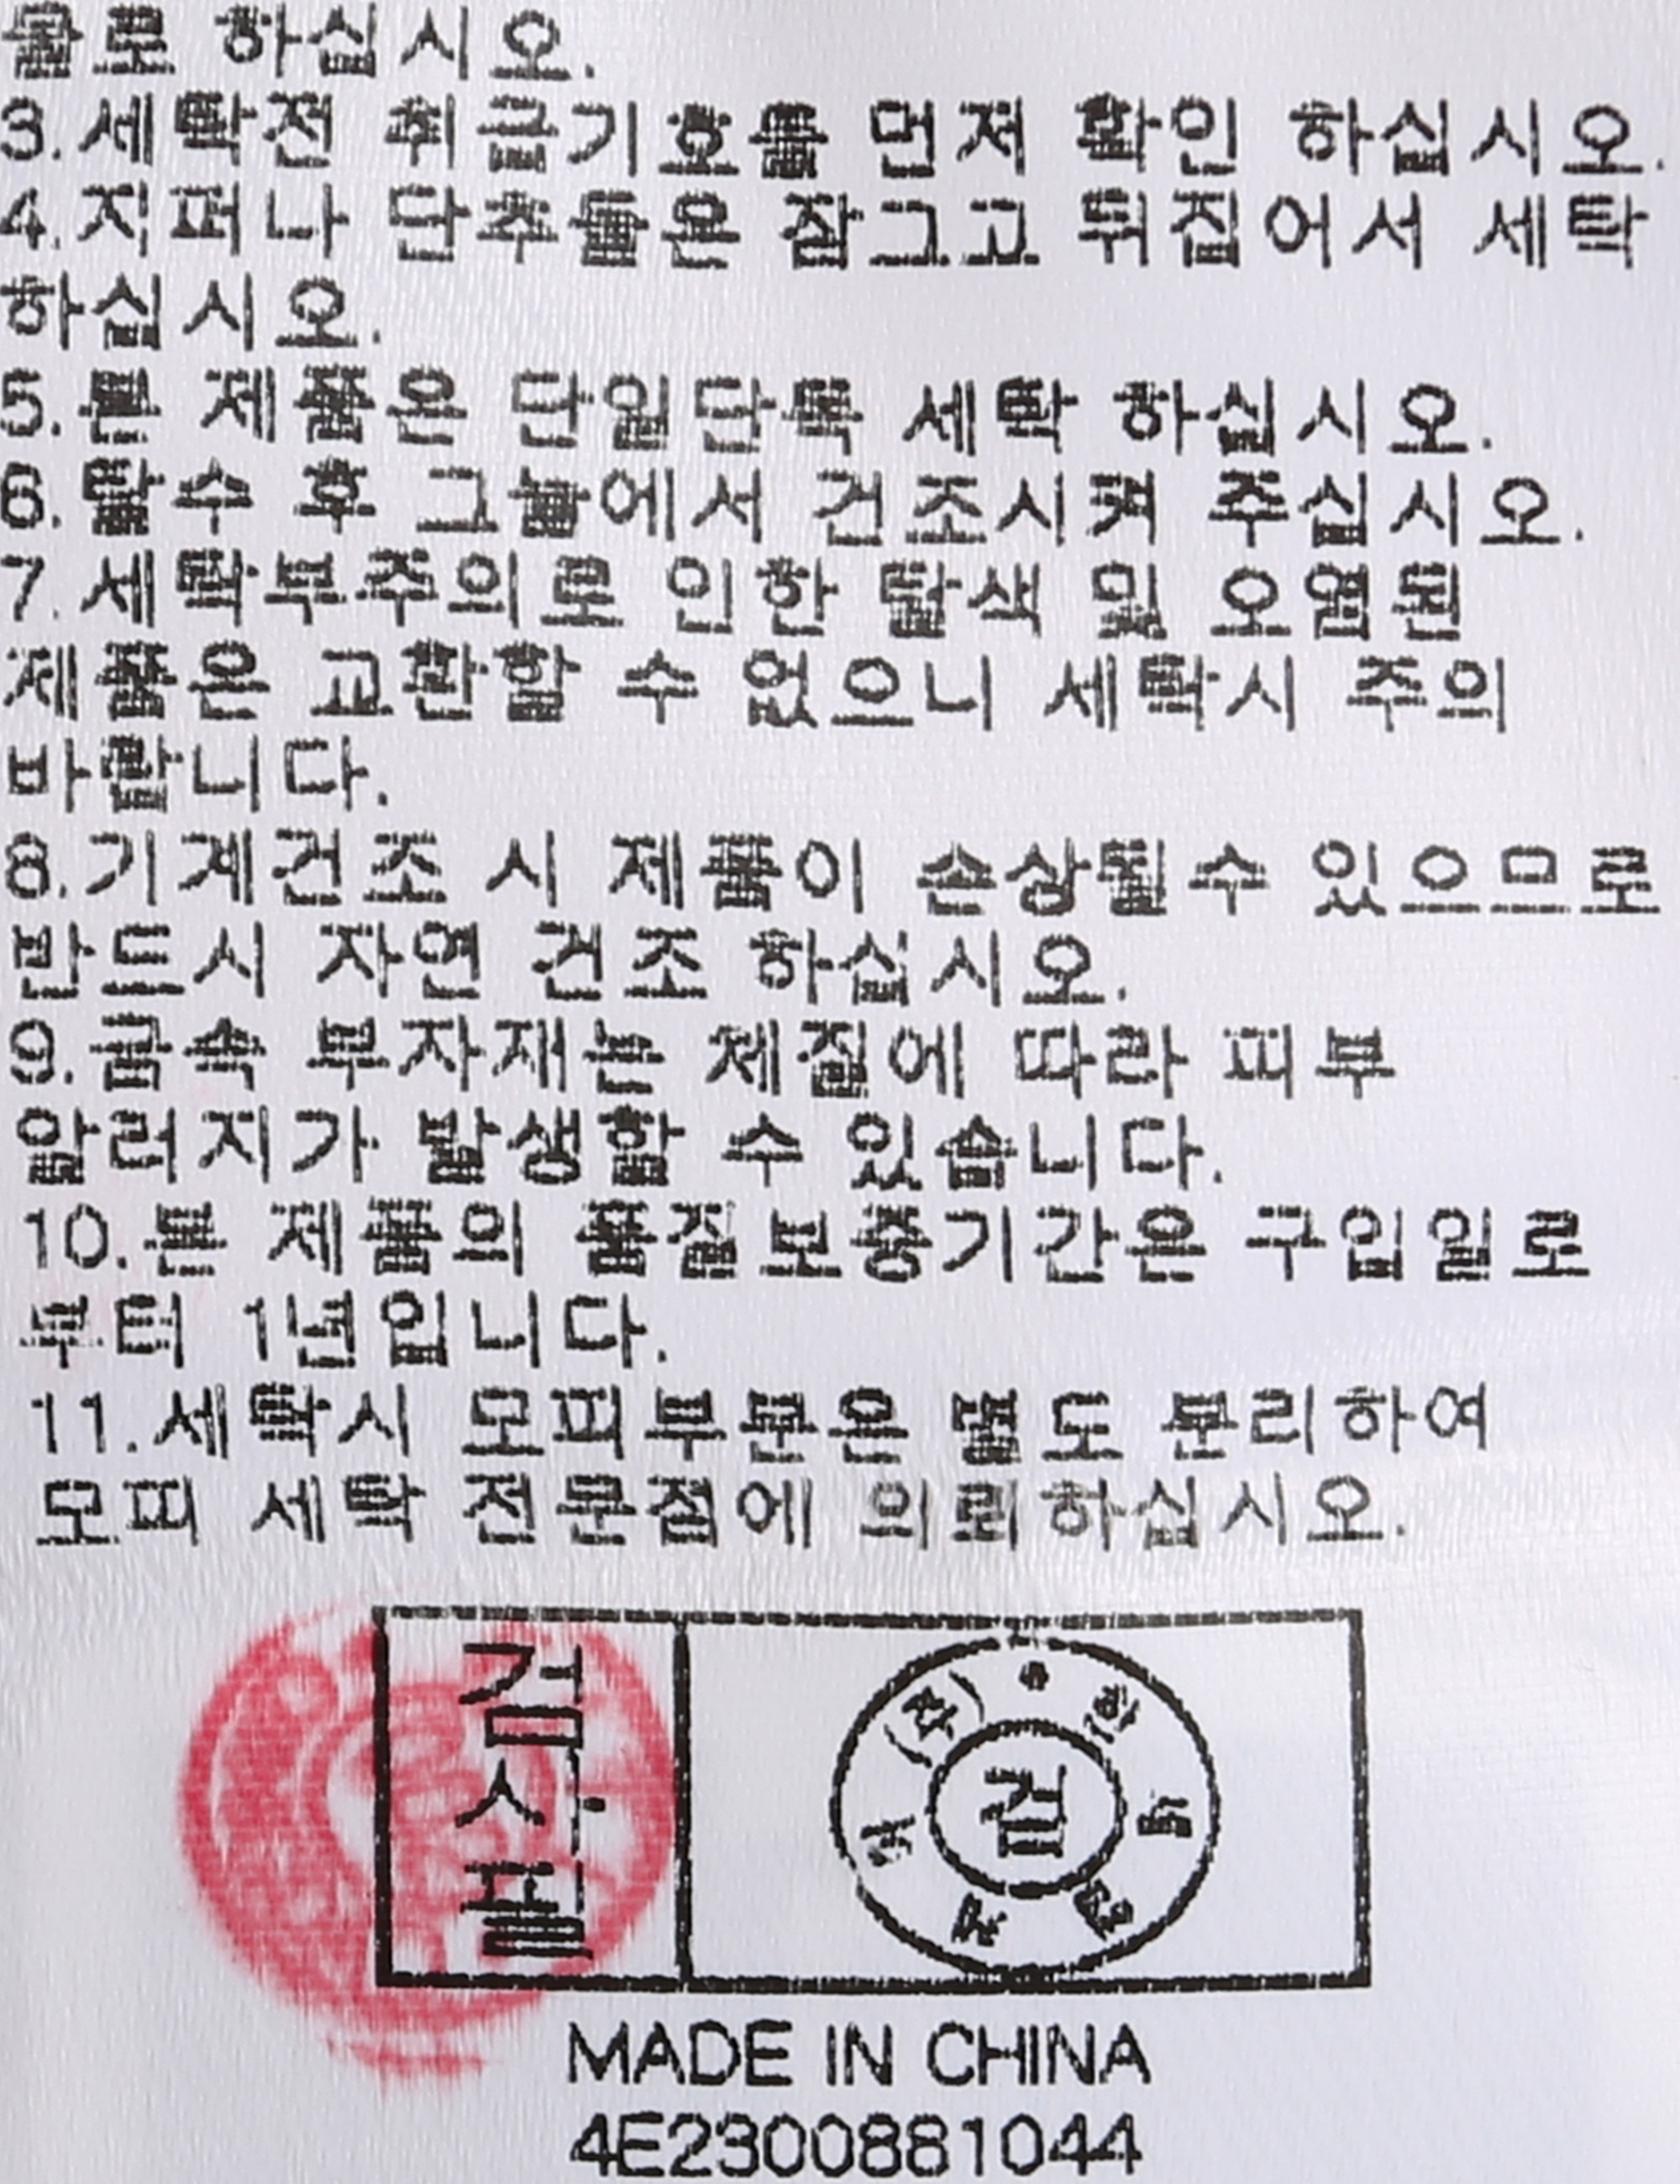 물로 하십시오.
3.세탁전 취급기호를 먼저 확인 하십시오.
4.지퍼나 단추들은 잠그고 뒤집어서 세탁
하십시오.
5.본 제품은 단일단독 세탁 하십시오.
6.탈수 후 그늘에서 건조시켜 주십시오.
7.세탁부주의로 인한 탈색 및 오염된
제품은 교환할 수 없으니 세탁시 주의
바랍니다.
8.기계건조 시 제품이 손상될수 있으므로
반드시 자연 건조 하십시오.
9.금속 부자재는 체질에 따라 피부
알러지가 발생할 수 있습니다.
10.본 제품의 품질보증기간은 구입일로
부터 1년입니다.
11.세탁시 모피부분은 별도 분리하여
모피 세탁 전문점에 의뢰하십시오.
검사필
검
MADE IN CHINA
4E2300881044